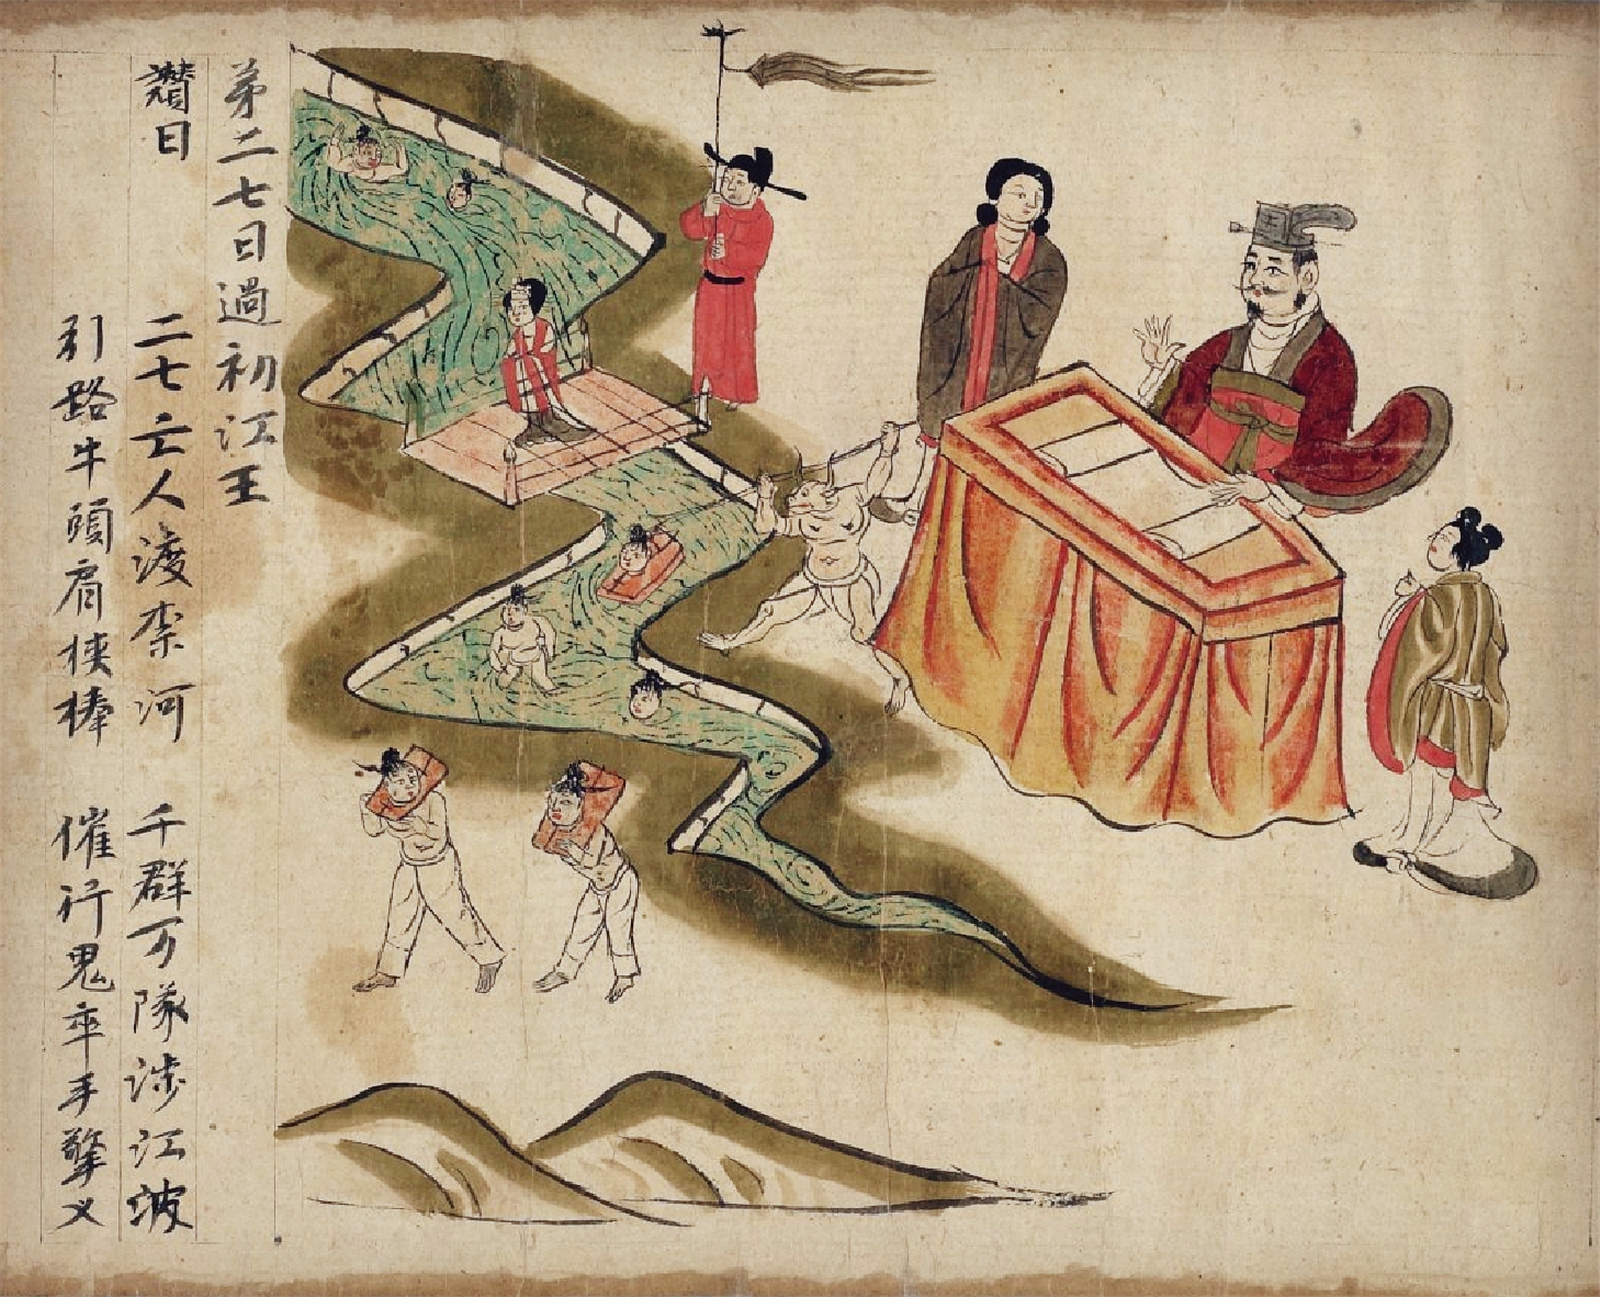 弟二七日過初江王
讃曰　二七亡人渡柰河　千群万隊涉江波
引路牛頭肩挾棒　催行鬼卒手擎叉